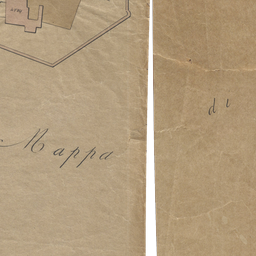 Mappa
di